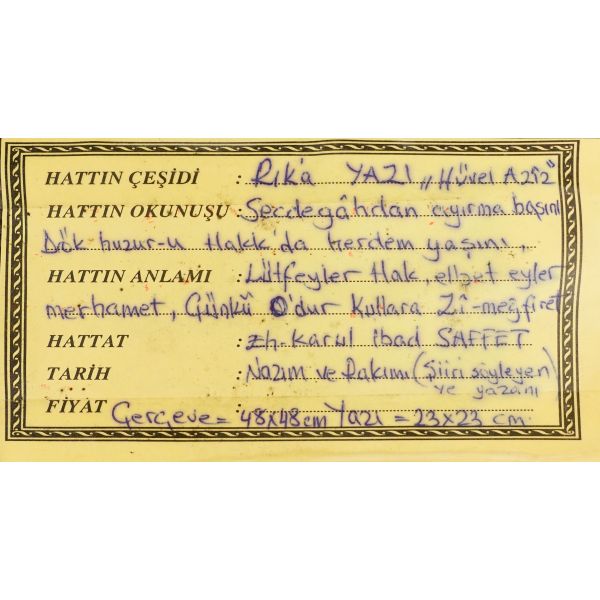 HATTIN ÇEŞİDİ : Rık'a YAZI „Hüvel Aziz"
HATTIN OKUNUŞU : Secdegâhdan ayırma başını
Dök huzur-u Hakk da herdem yaşını,
HATTIN ANLAMI : Lütfeyler Hak, elbet eyler
merhamet, Çünkü O'dur Kullara Zî-mağfiret
HATTAT : Eh-karul ibad SAFFET
TARİH : Nazım ve Rakımı (Şiiri söyleyen
ve yazanı
FİYAT : Çerçeve = 48x48cm Yazı = 23x23 cm.